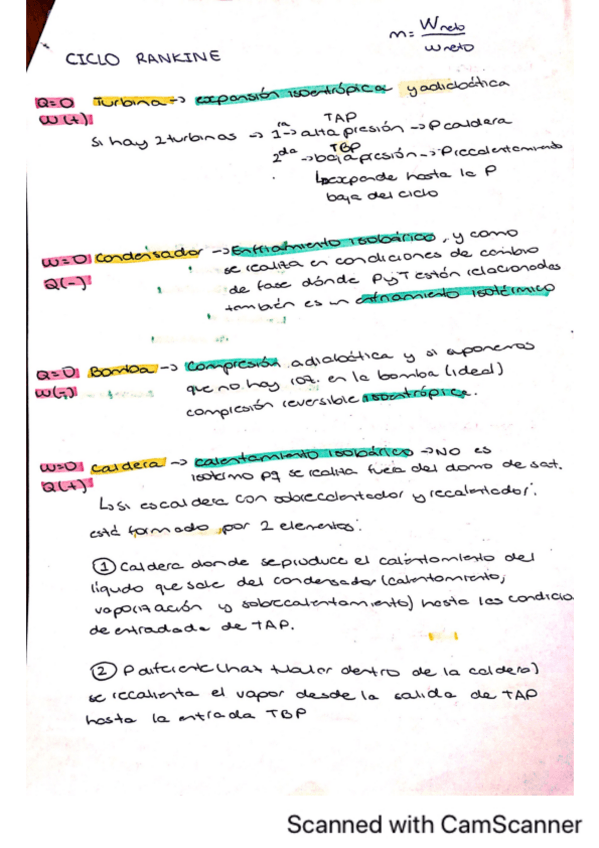 m= Wneto
wneto
CICLO RANKINE
Q=0 Turbina → expansión isoentrópica y adiabática
W(+)
TAP
Si hay 2 turbinas → 1ra → alta presión → P caldera
TBP
2da → baja presión → P recalentamiento
↳ expande hasta la P
baja del ciclo
W=0 Condensador → Enfriamiento isobárico, y como
Q(-)
se realiza en condiciones de cambio
de fase dónde P y T están relacionadas
también es un enfriamiento isotérmico
Q=0 Bomba → Compresión adiabática y si suponemos
W(-)
que no hay roz. en la bomba (ideal)
compresión reversible isoentrópica.
W=0 Caldera → calentamiento isobárico → NO es
Q(+)
isotermo pq se realiza fuera del domo de sat.
↳ Si es caldera con sobrecalentador y recalentador:
está formado por 2 elementos:
① Caldera donde se produce el calentamiento del
líqudo que sale del condensador (calentamiento,
vaporización y sobrecalentamiento) hasta las condicio
de entradada de TAP.
② P diferente (hax dentro de la caldera)
se recalienta el vapor desde la salida de TAP
hasta la entrada TBP
Scanned with CamScanner